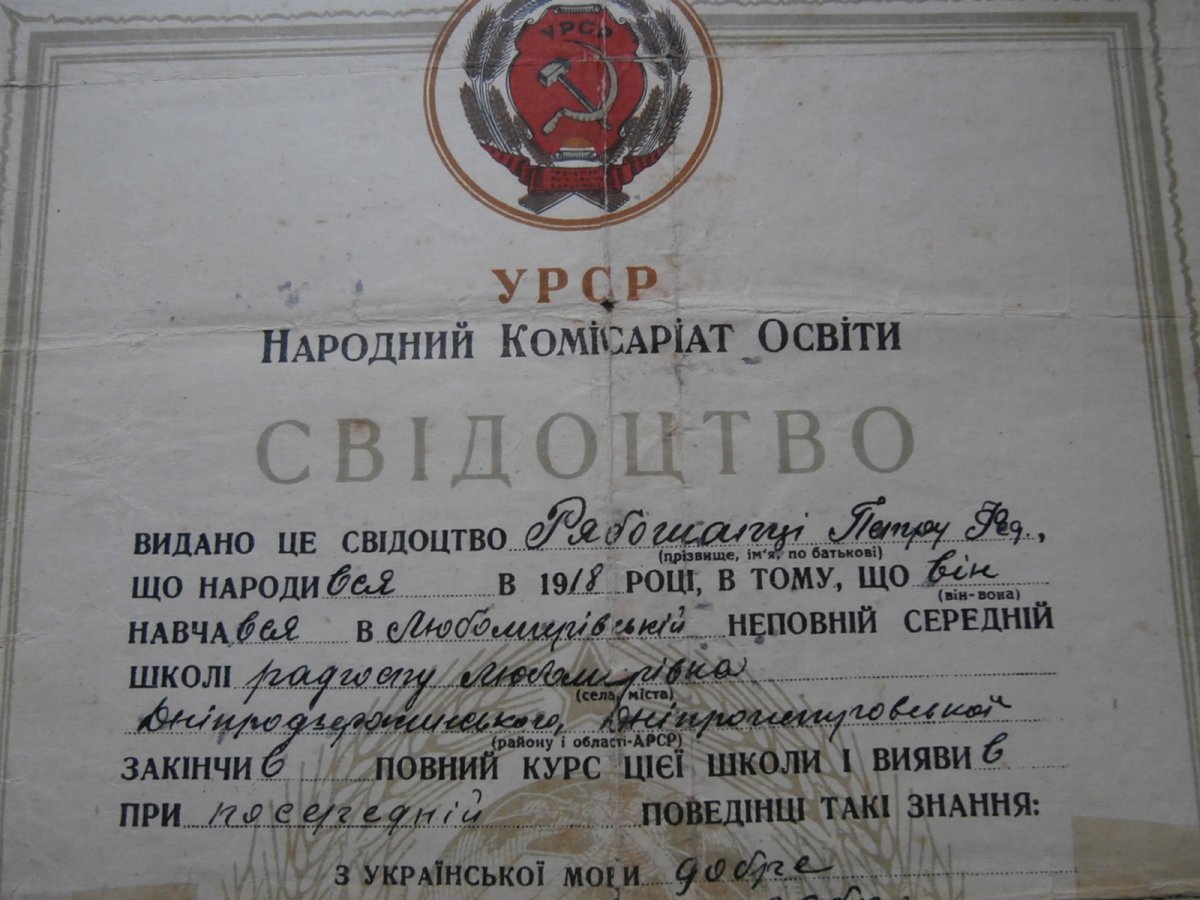 УРСР
УРСР
НАРОДНИЙ КОМІСАРІАТ ОСВІТИ
СВІДОЦТВО
ВИДАНО ЦЕ СВІДОЦТВО Рябошапці Петру Фед.,
(прізвище, ім'я, по батькові)
ЩО НАРОДИвся В 1918 РОЦІ, В ТОМУ, ЩО він
(він-вона)
НАВЧАвся В Любомирівській НЕПОВНІЙ СЕРЕДНІЙ
ШКОЛІ радгоспу Любомирівка
(села, міста)
Дніпродзержинського, Дніпропетровської
(району і області-АРСР)
ЗАКІНЧИв ПОВНИЙ КУРС ЦІЄЇ ШКОЛИ І ВИЯВИв
ПРИ посередній ПОВЕДІНЦІ ТАКІ ЗНАННЯ:
З УКРАЇНСЬКОЇ МОВИ добре